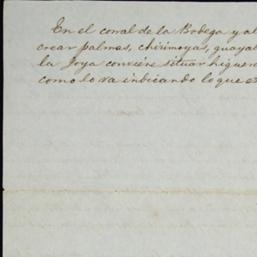 En el corral de la Bodega y al
crear palmas, chirimoyas, guayab
la Joya conviene situar higuer
como lo va indicando lo que e